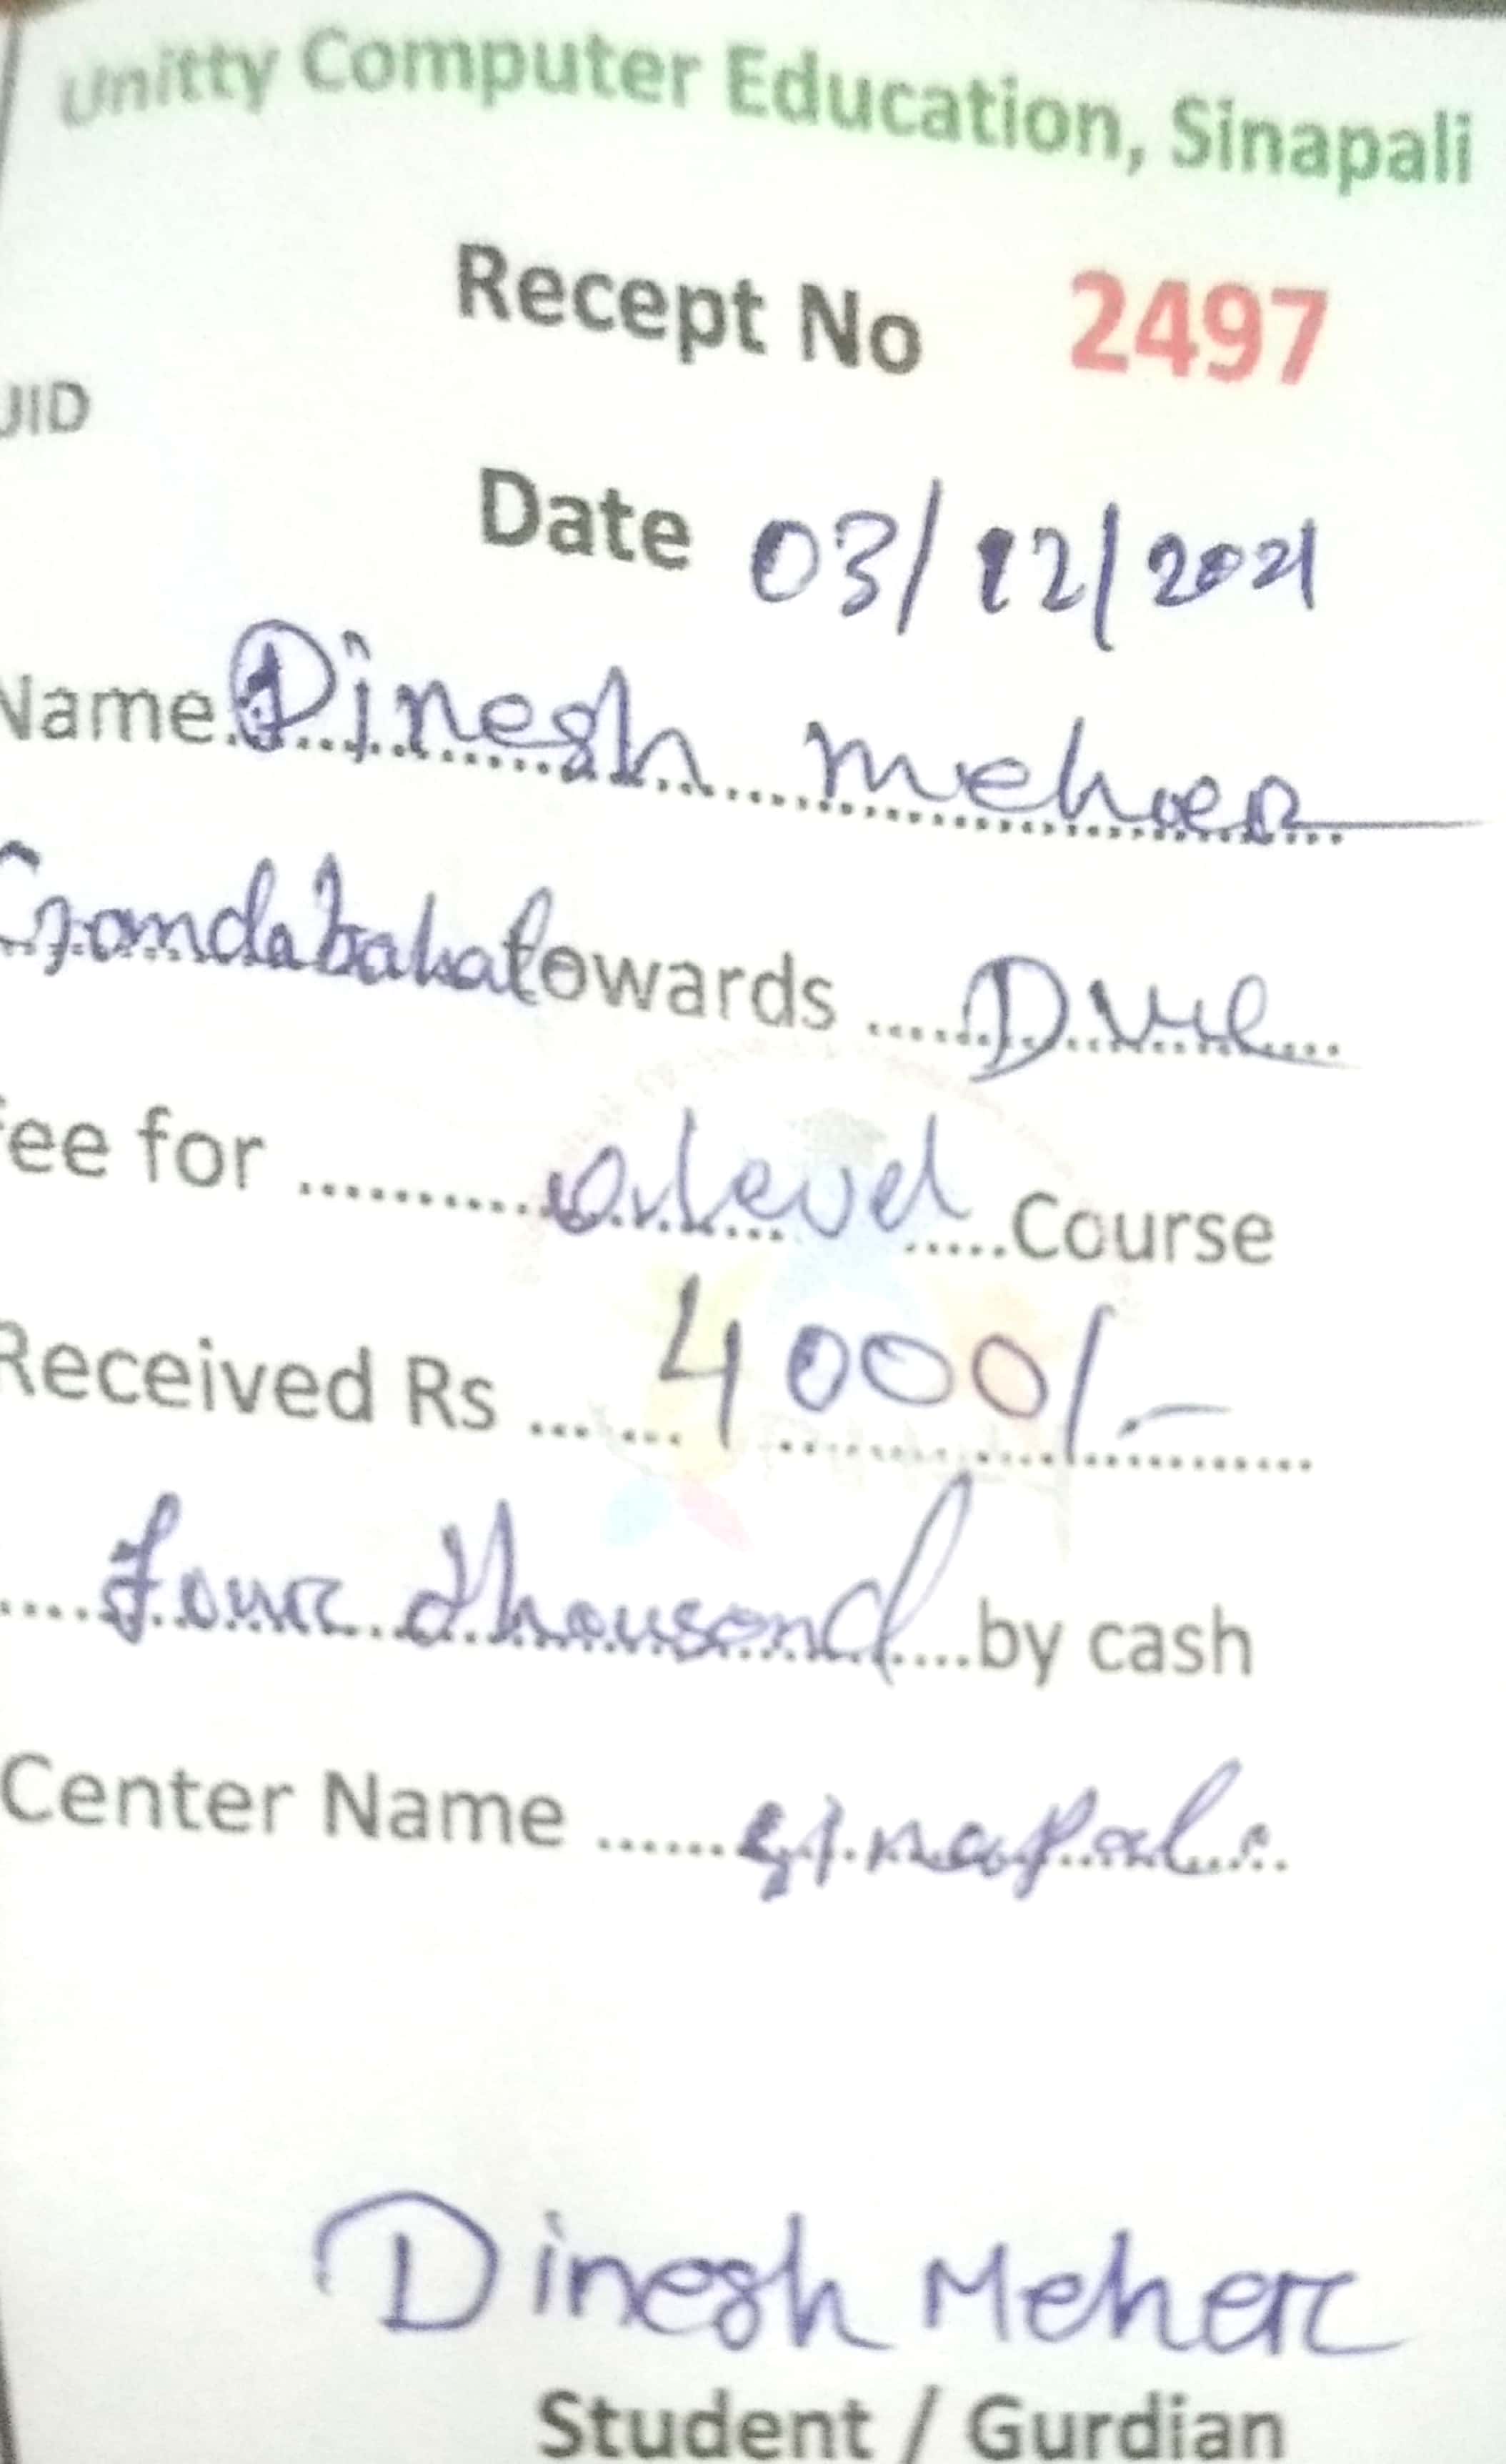 Unitty Computer Education, Sinapali
Recept No 2497
UID
Date 03/12/2021
Name Dinesh meher
Gandabahal towards Due
fee for O level Course
Received Rs 4000/-
four thousand by cash
Center Name sinapali
Dinesh Meher
Student / Gurdian